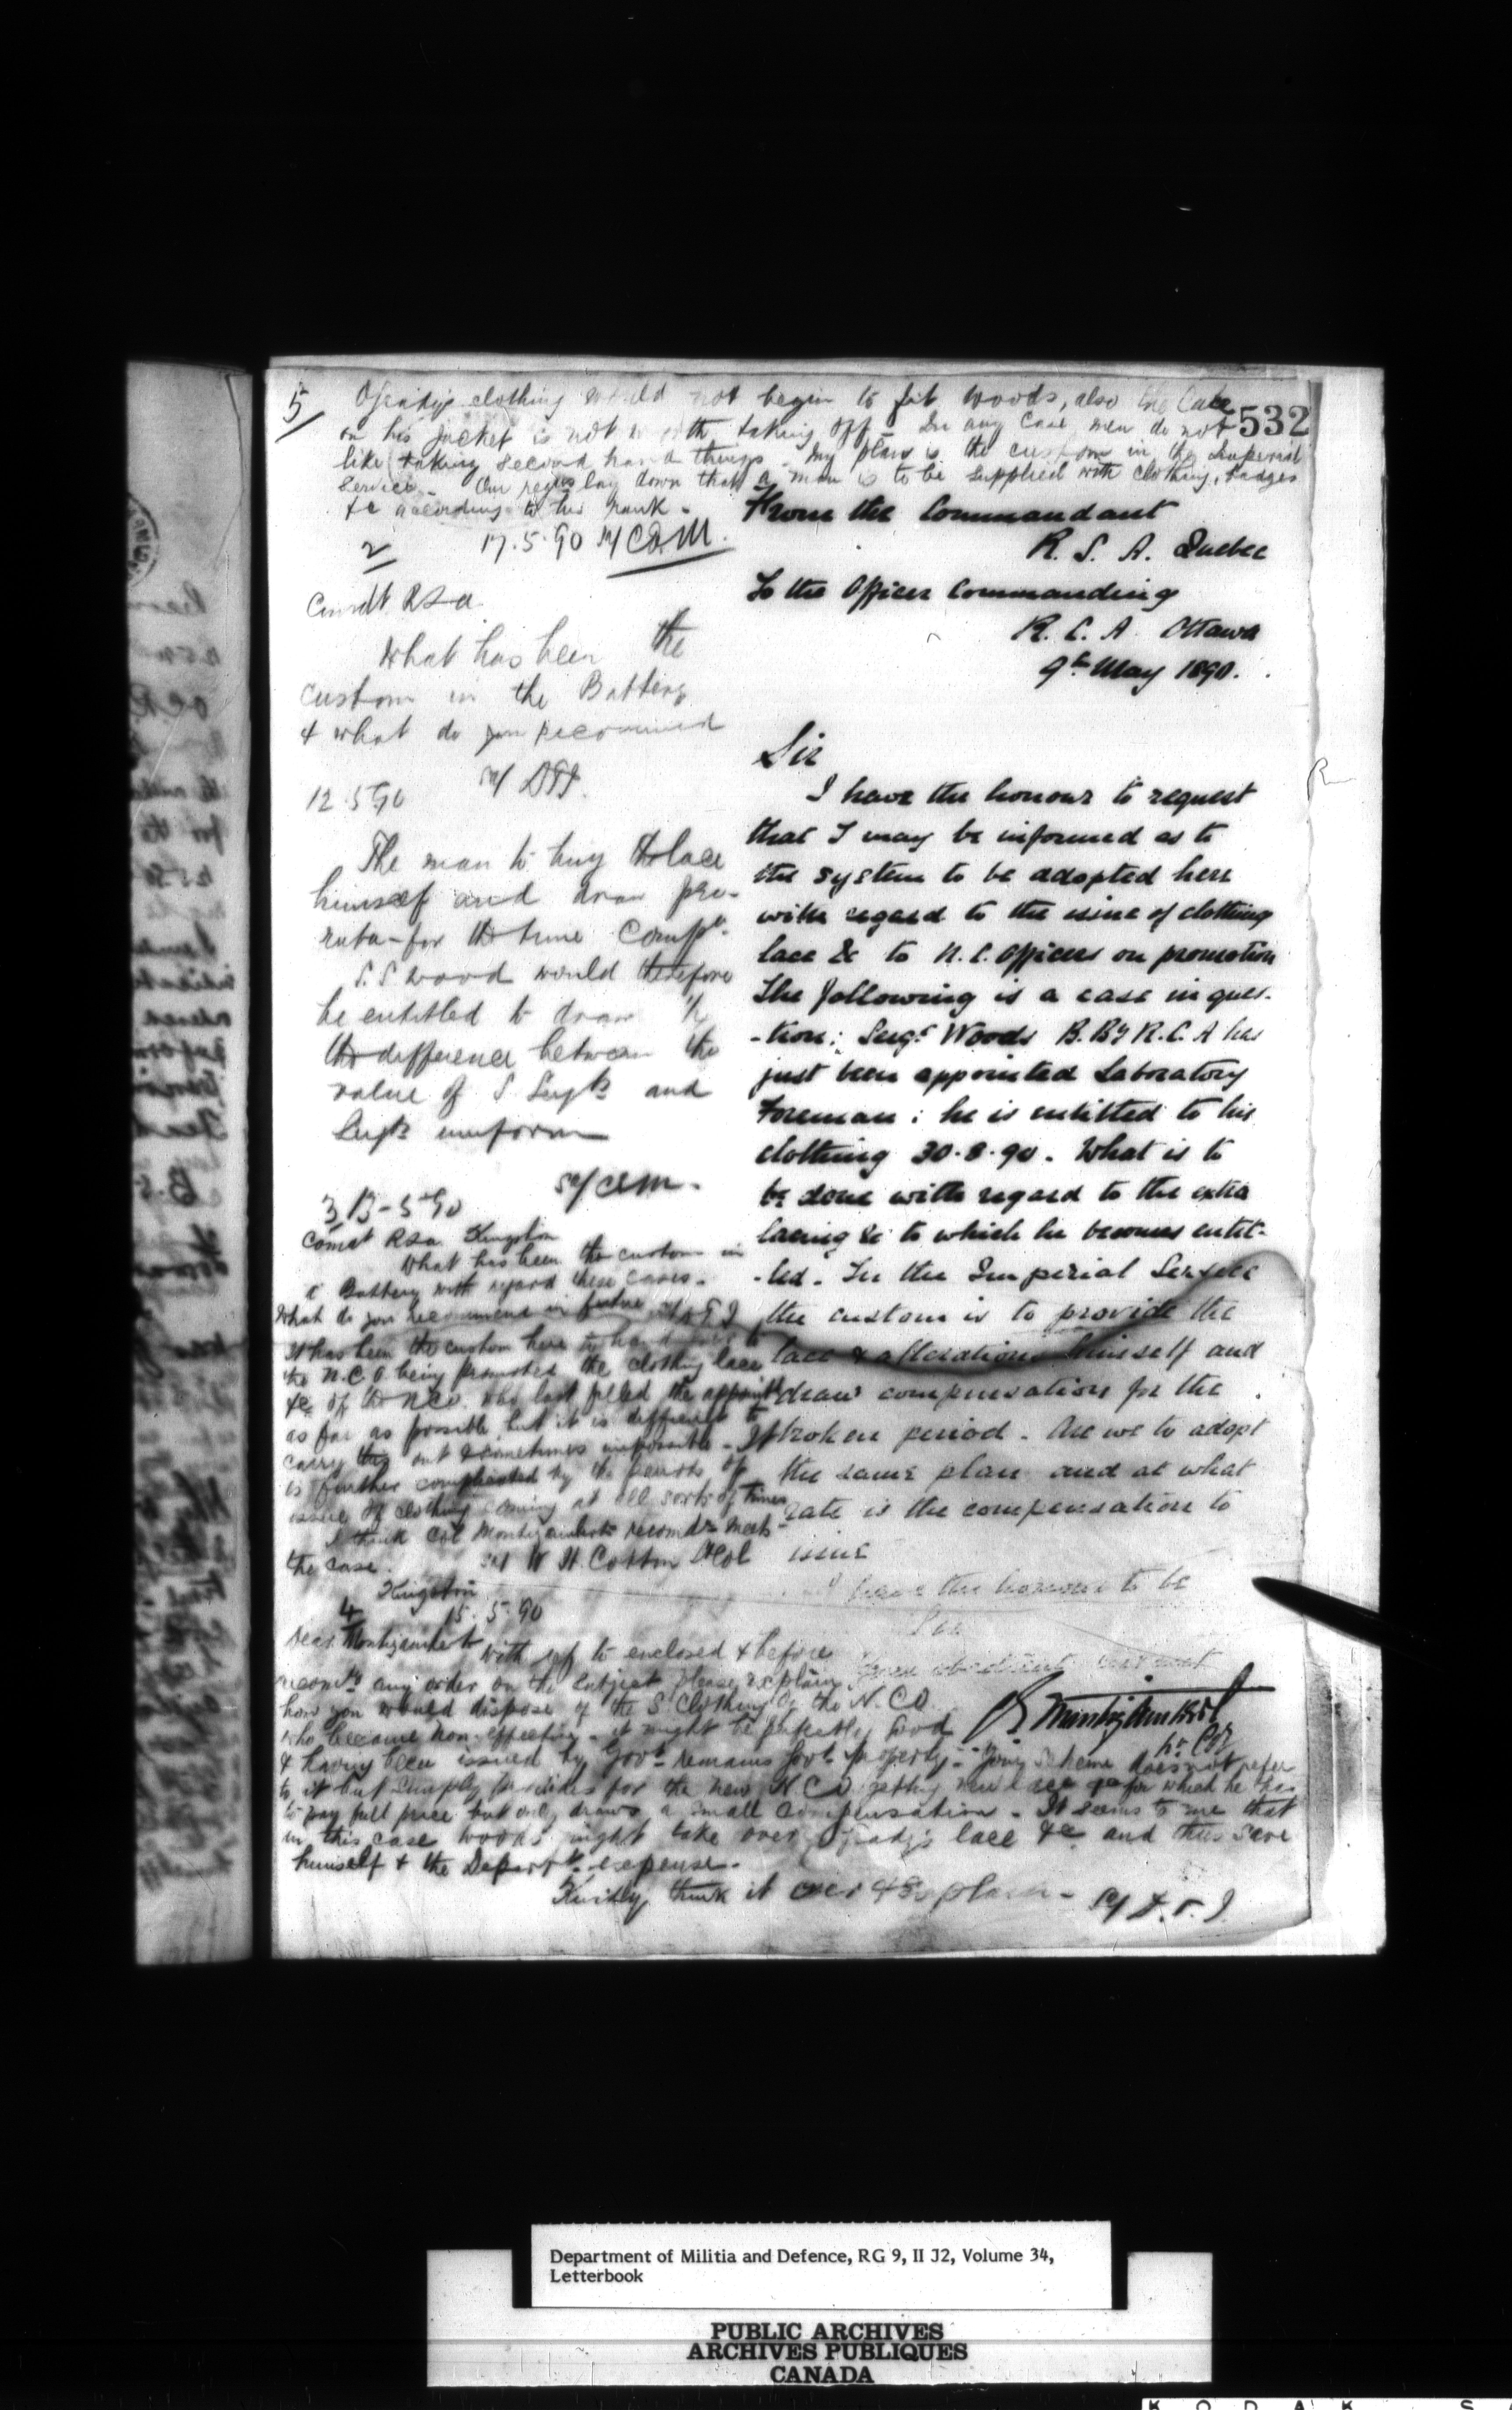 5/ O'Grady's clothing would not begin to fit Woods, also the lace
532
on his jacket is not worth taking off - In any case, men do not
like taking second hand things - My plan is the custom in the Imperial
Service - Our regns lay down that a man is to be supplied with clothing, badges
&c according to his rank -
17.5.90 sd/ C.E.M.
From the Commandant
R. S. A. Quebec
To the Officer Commanding
R. C. A. Ottawa
9th May 1890.
Sir
I have the honour to request
that I may be informed as to
the system to be adopted here
with regard to the issue of clothing
lace &c to N. C. Officers on promotion
The following is a case in ques-
-tion: Sergt Woods B. By R. C. A has
just been appointed Laboratory
Foreman: he is entitled to his
clothing 30.8.90. What is to
be done with regard to the extra
lacing &c to which he becomes entit-
-led. In the Imperial Service
the custom is to provide the
lace & alterations himself and
draw compensation for the
broken period. Are we to adopt
the same plan and at what
rate is the compensation to
issue
I have the honour to be
Sir
Your obedient servant
Montizambert
Lt Col
2/
Comdt RSA
What has been the
custom in the Battery
& what do you recommend
12.5.90 sd/ D.G.
The man to buy the lace
himself and draw pro-
rata for the time Compn.
S.S. Wood would therefore
be entitled to draw
the difference between the
value of S Sergts and
Sergts uniform
sd/ CEM.
3 13-5-90
Comdt RSA Kingston
What has been the custom in
A Battery with regard these cases.
What do you recommend in future
It has been the custom here to hand over to
the N.C.O. being promoted the clothing lace
&c of the NCO. who last filled the appointt
as far as possible, but it is difficult to
carry this out & sometimes impossible - It
is further complicated by the periods of
issue of clothing coming at all sorts of times
I think Col Montizamberts recomdn meets
the case. sd W. H. Cotton Lt Col
Kingston
15.5.90
4
Dear Montizambert
With ref to enclosed & before
recomdg any order on the subject please explain
how you would dispose of the S Clothing of the N.C.O
who became non-effective - it might be perfectly good
& having been issued by Govt. remains Govt. property - Your scheme does not refer
to it but simply provides for the new N C O getting new lace &c for which he has
to pay full price but only draws a small compensation - It seems to me that
in this case Woods might take over O'Grady's lace &c and thus save
himself & the Departt. expense.
Kindly think it over & explain -
Department of Militia and Defence, RG 9, II J2, Volume 34,
Letterbook
PUBLIC ARCHIVES
ARCHIVES PUBLIQUES
CANADA